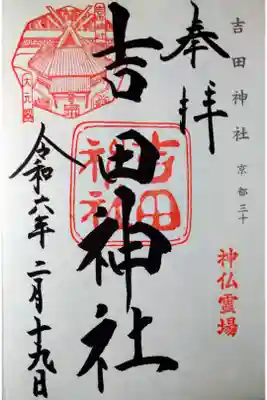 吉田神社 京都三十
神仏霊場
奉拝
吉田神社
吉田
神社
令和六年二月十九日